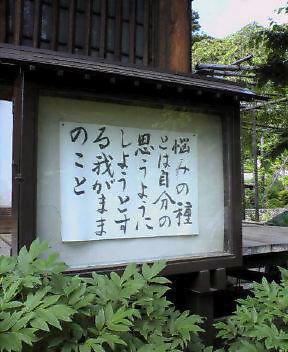 悩みの種
とは自分の
思うように
しようとす
る我がまま
のこと